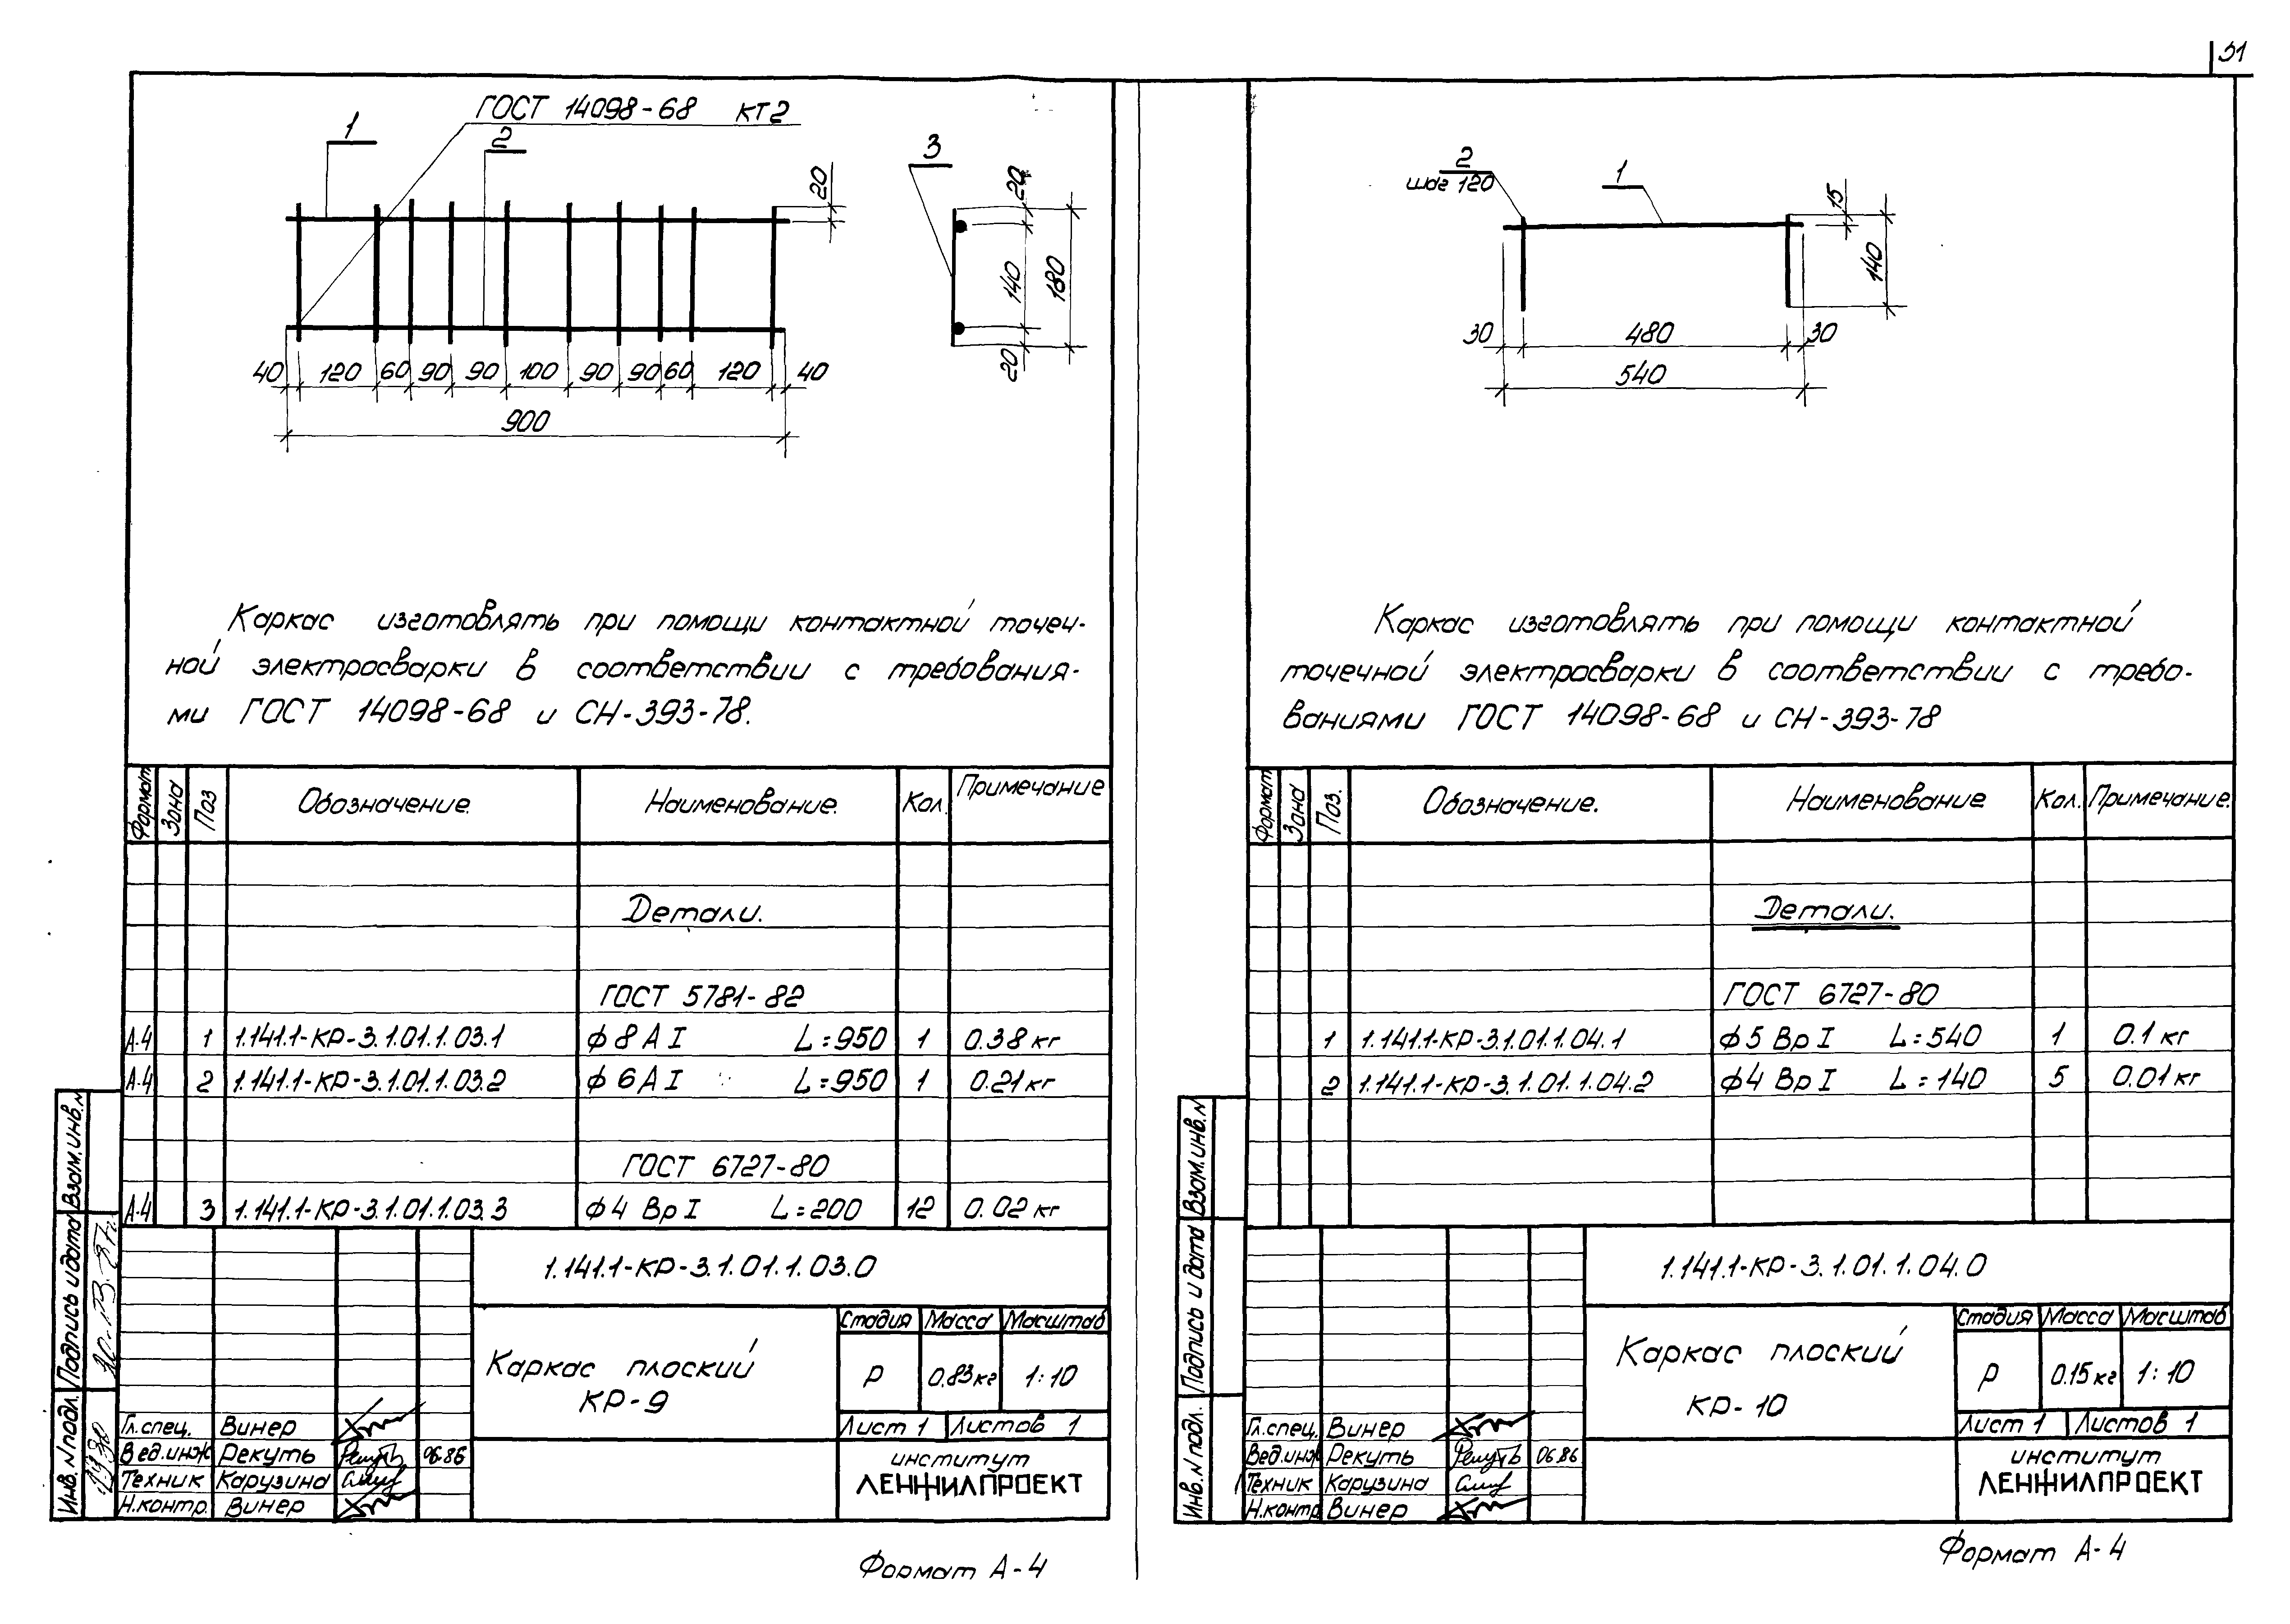 31
ГОСТ 14098-68 КТ2
1
2
20
40 120 60 90 90 100 90 90 60 120 40
900
3
20
140
180
20
Каркас изготовлять при помощи контактной точеч-
ной электросварки в соответствии с требования-
ми ГОСТ 14098-68 и СН-393-78.
Формат Зона Поз Обозначение. Наименование. Кол. Примечание
Детали.
ГОСТ 5781-82
А-4 1 1.141.1-КР-3.1.01.1.03.1 ф 8 А I L=950 1 0.38 кг
А-4 2 1.141.1-КР-3.1.01.1.03.2 ф 6 А I L=950 1 0.21 кг
ГОСТ 6727-80
А-4 3 1.141.1-КР-3.1.01.1.03.3 ф 4 Вр I L=200 12 0.02 кг
1.141.1-КР-3.1.01.1.03.0
Каркас плоский
КР-9
Стадия Масса Масштаб
Р 0,83 кг 1:10
Лист 1 Листов 1
Гл.спец. Винер
Вед.инж Рекуть 06.86
Техник Карузина
Н.контр. Винер
институт
ЛЕНЖИЛПРОЕКТ
Взам.инв.N
Подпись и дата
Инв.N подл.
Формат А-4
2
шаг 120
1
15
140
30 480 30
540
Каркас изготовлять при помощи контактной
точечной электросварки в соответствии с требо-
ваниями ГОСТ 14098-68 и СН-393-78
Формат Зона Поз. Обозначение. Наименование Кол. Примечание.
Детали.
ГОСТ 6727-80
1 1.141.1-КР-3.1.01.1.04.1 ф 5 Вр I L=540 1 0.1 кг
2 1.141.1-КР-3.1.01.1.04.2 ф4 Вр I L=140 5 0.01 кг
1.141.1-КР-3.1.01.1.04.0
Каркас плоский
КР-10
Стадия Масса Масштаб
Р 0.15 кг 1:10
Лист 1 Листов 1
Гл.спец. Винер
Вед.инж Рекуть 06.86
Техник Карузина
Н.контр Винер
институт
ЛЕНЖИЛПРОЕКТ
Взам.инв.N
Подпись и дата
Инв.N подл.
Формат А-4